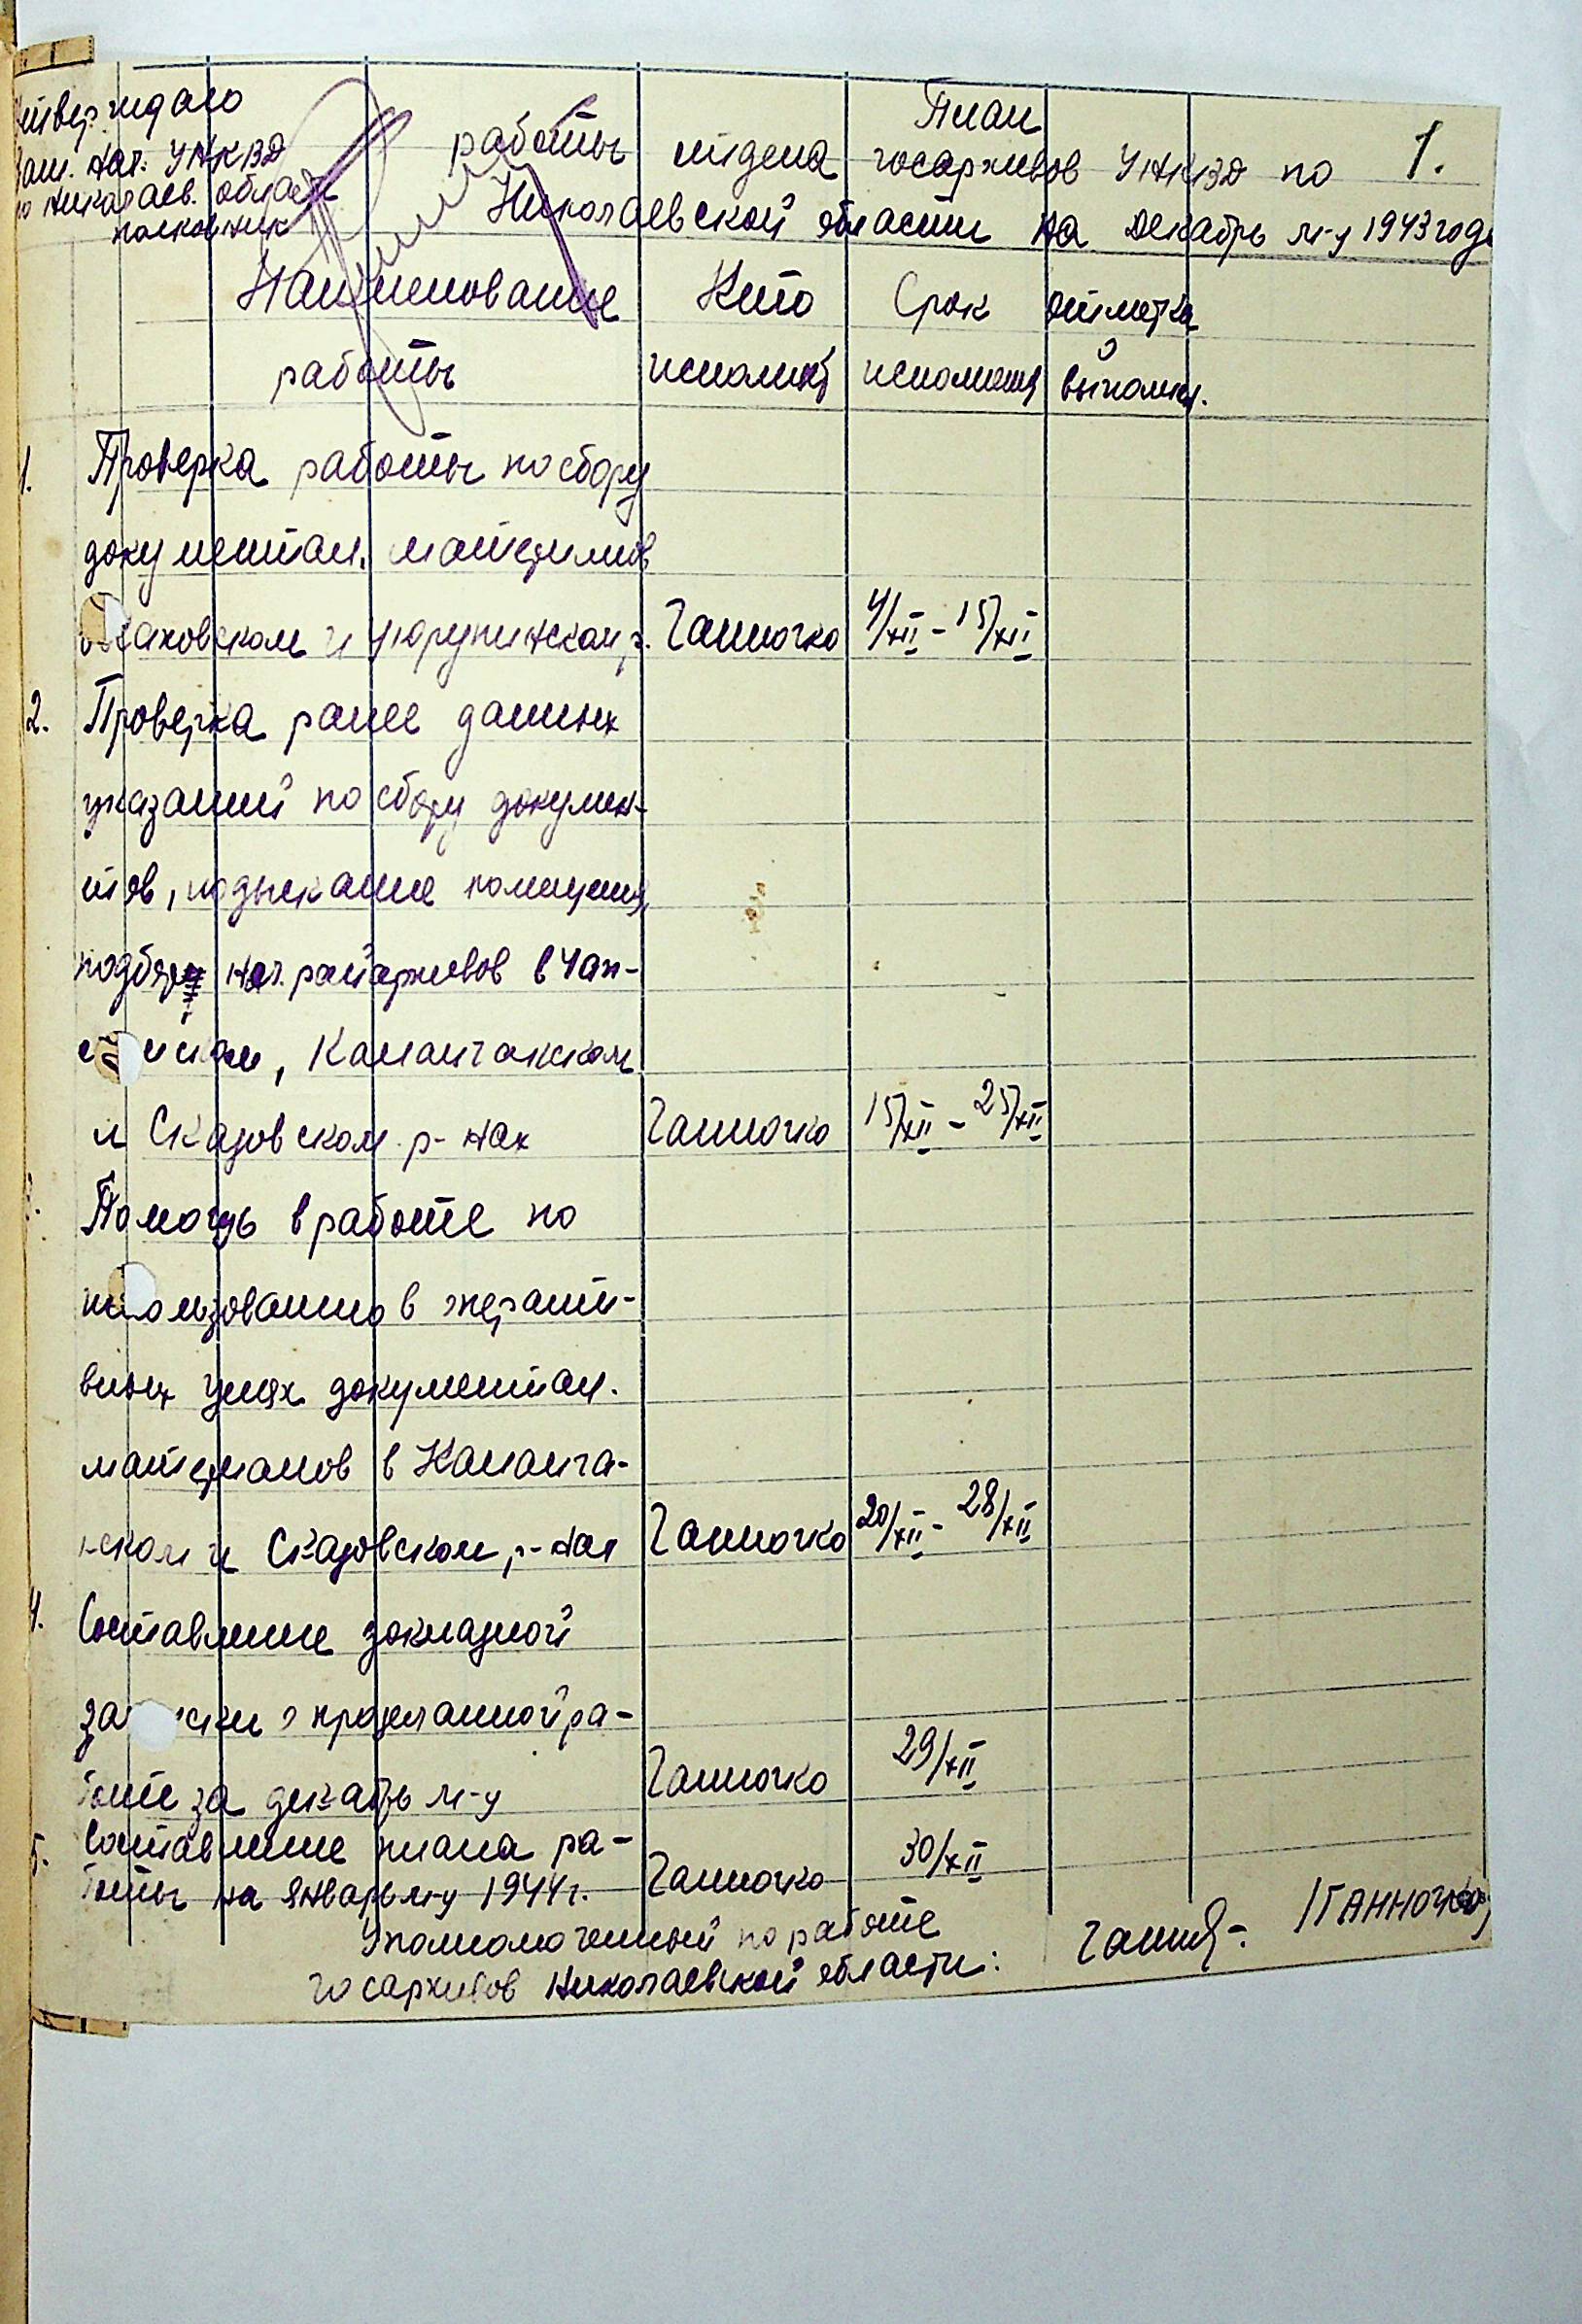 Утверждаю
Зам. Нач. УНКВД
по Николаев. области
полковник
1.
План
работы отдела госархивов УНКВД по
Николаевской области на декабрь м-ц 1943 года
Наименование работы
Кто исполняет
Срок исполнения
Отметка о выполнен.
1. Проверка работы по сбору
документал. материалов
в Цюрупинском р.
Ганночко 4/XII - 15/XII
2. Проверка ранее данных
указаний по сбору докумен-
тов, подыскание помещения,
подбор нач. райархивов в Чап-
Каланчакском
и Скадовском р-нах
Ганночко 15/XII - 25/XII
Помощь в работе по
использованию в операти-
вных целях документал.
материалов в Каланча-
кском и Скадовском р-нах
Ганночко 20/XII - 28/XII
4. Составление докладной
записки о проделанной ра-
боте за декабрь м-ц
Ганночко 29/XII
5. Составление плана ра-
боты на январь м-ц 1944 г.
Ганночко 30/XII
Уполномоченный по работе
госархивов Николаевской области: /ГАННОЧКО/